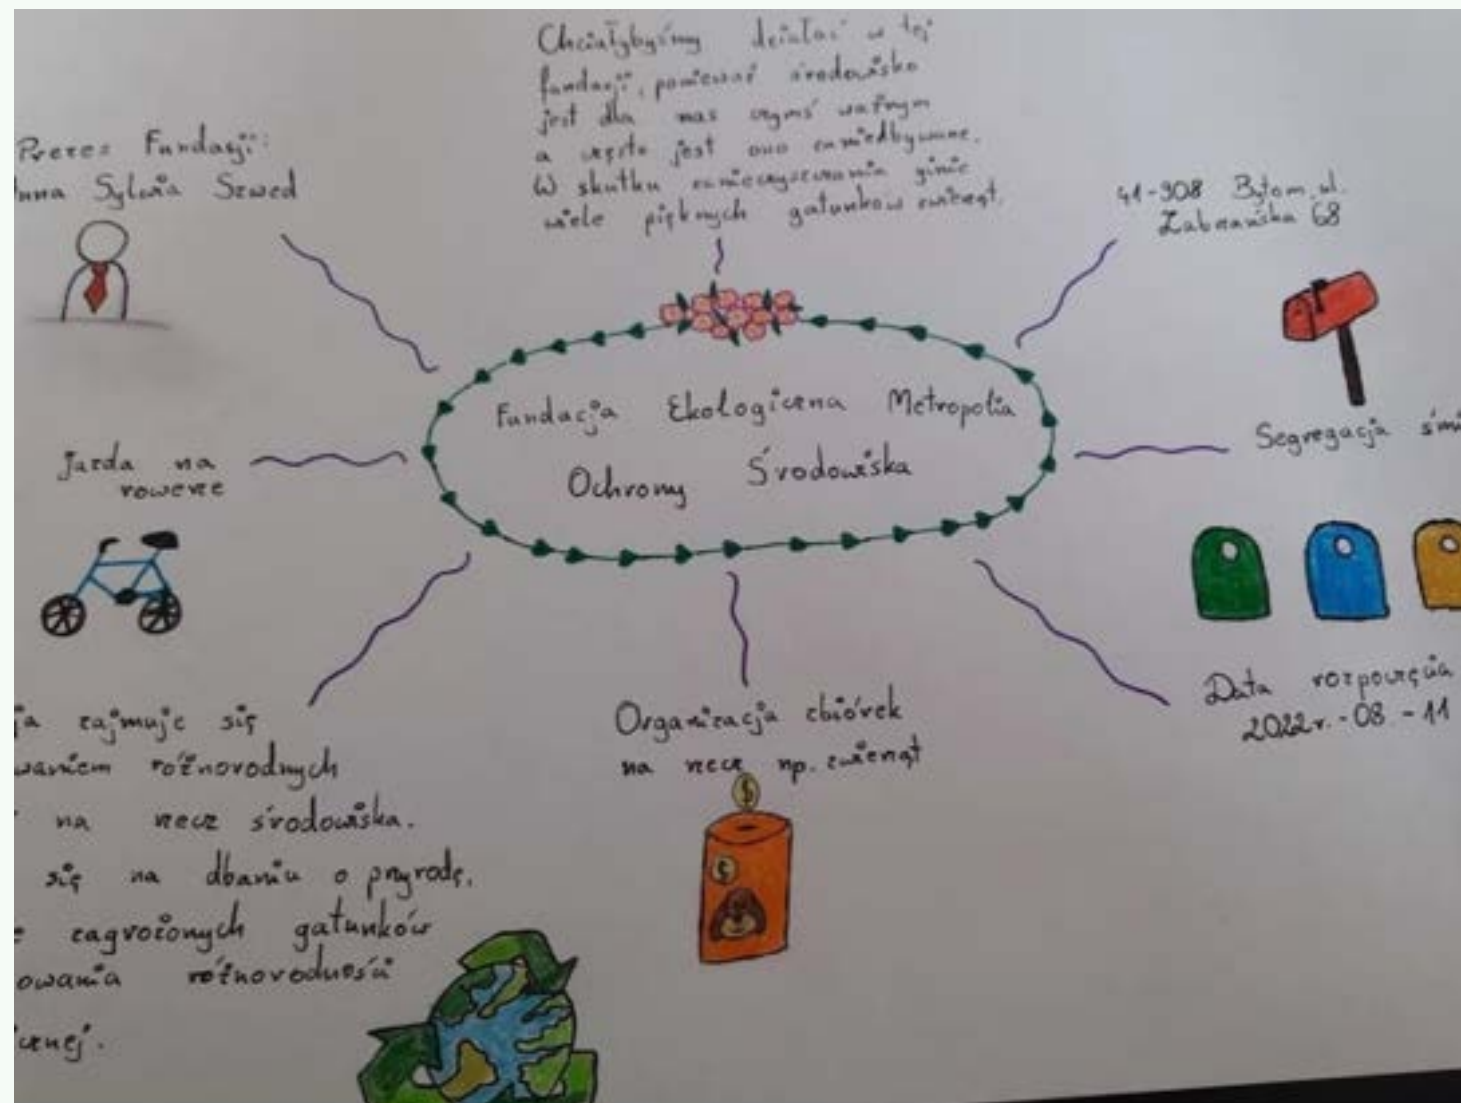 Chciałybyśmy działać w tej
fundacji, ponieważ środowisko
jest dla nas czymś ważnym
a często jest ono zaniedbywane.
W skutku zanieczyszczania ginie
wiele pięknych gatunków zwierząt.
Prezes Fundacji:
Anna Sylwia Szwed
41-908 Bytom, ul.
Zabrzańska 68
Fundacja Ekologiczna Metropolia
Ochrony Środowiska
Jazda na
rowerze
Segregacja śmi
Data rozpoczęcia
2022r.-08-11
Organizacja zbiórek
na rzecz np. zwierząt
ja zajmuje się
waniem różnorodnych
na rzecz środowiska.
się na dbaniu o przyrodę,
e zagrożonych gatunków
owania różnorodności
icznej.